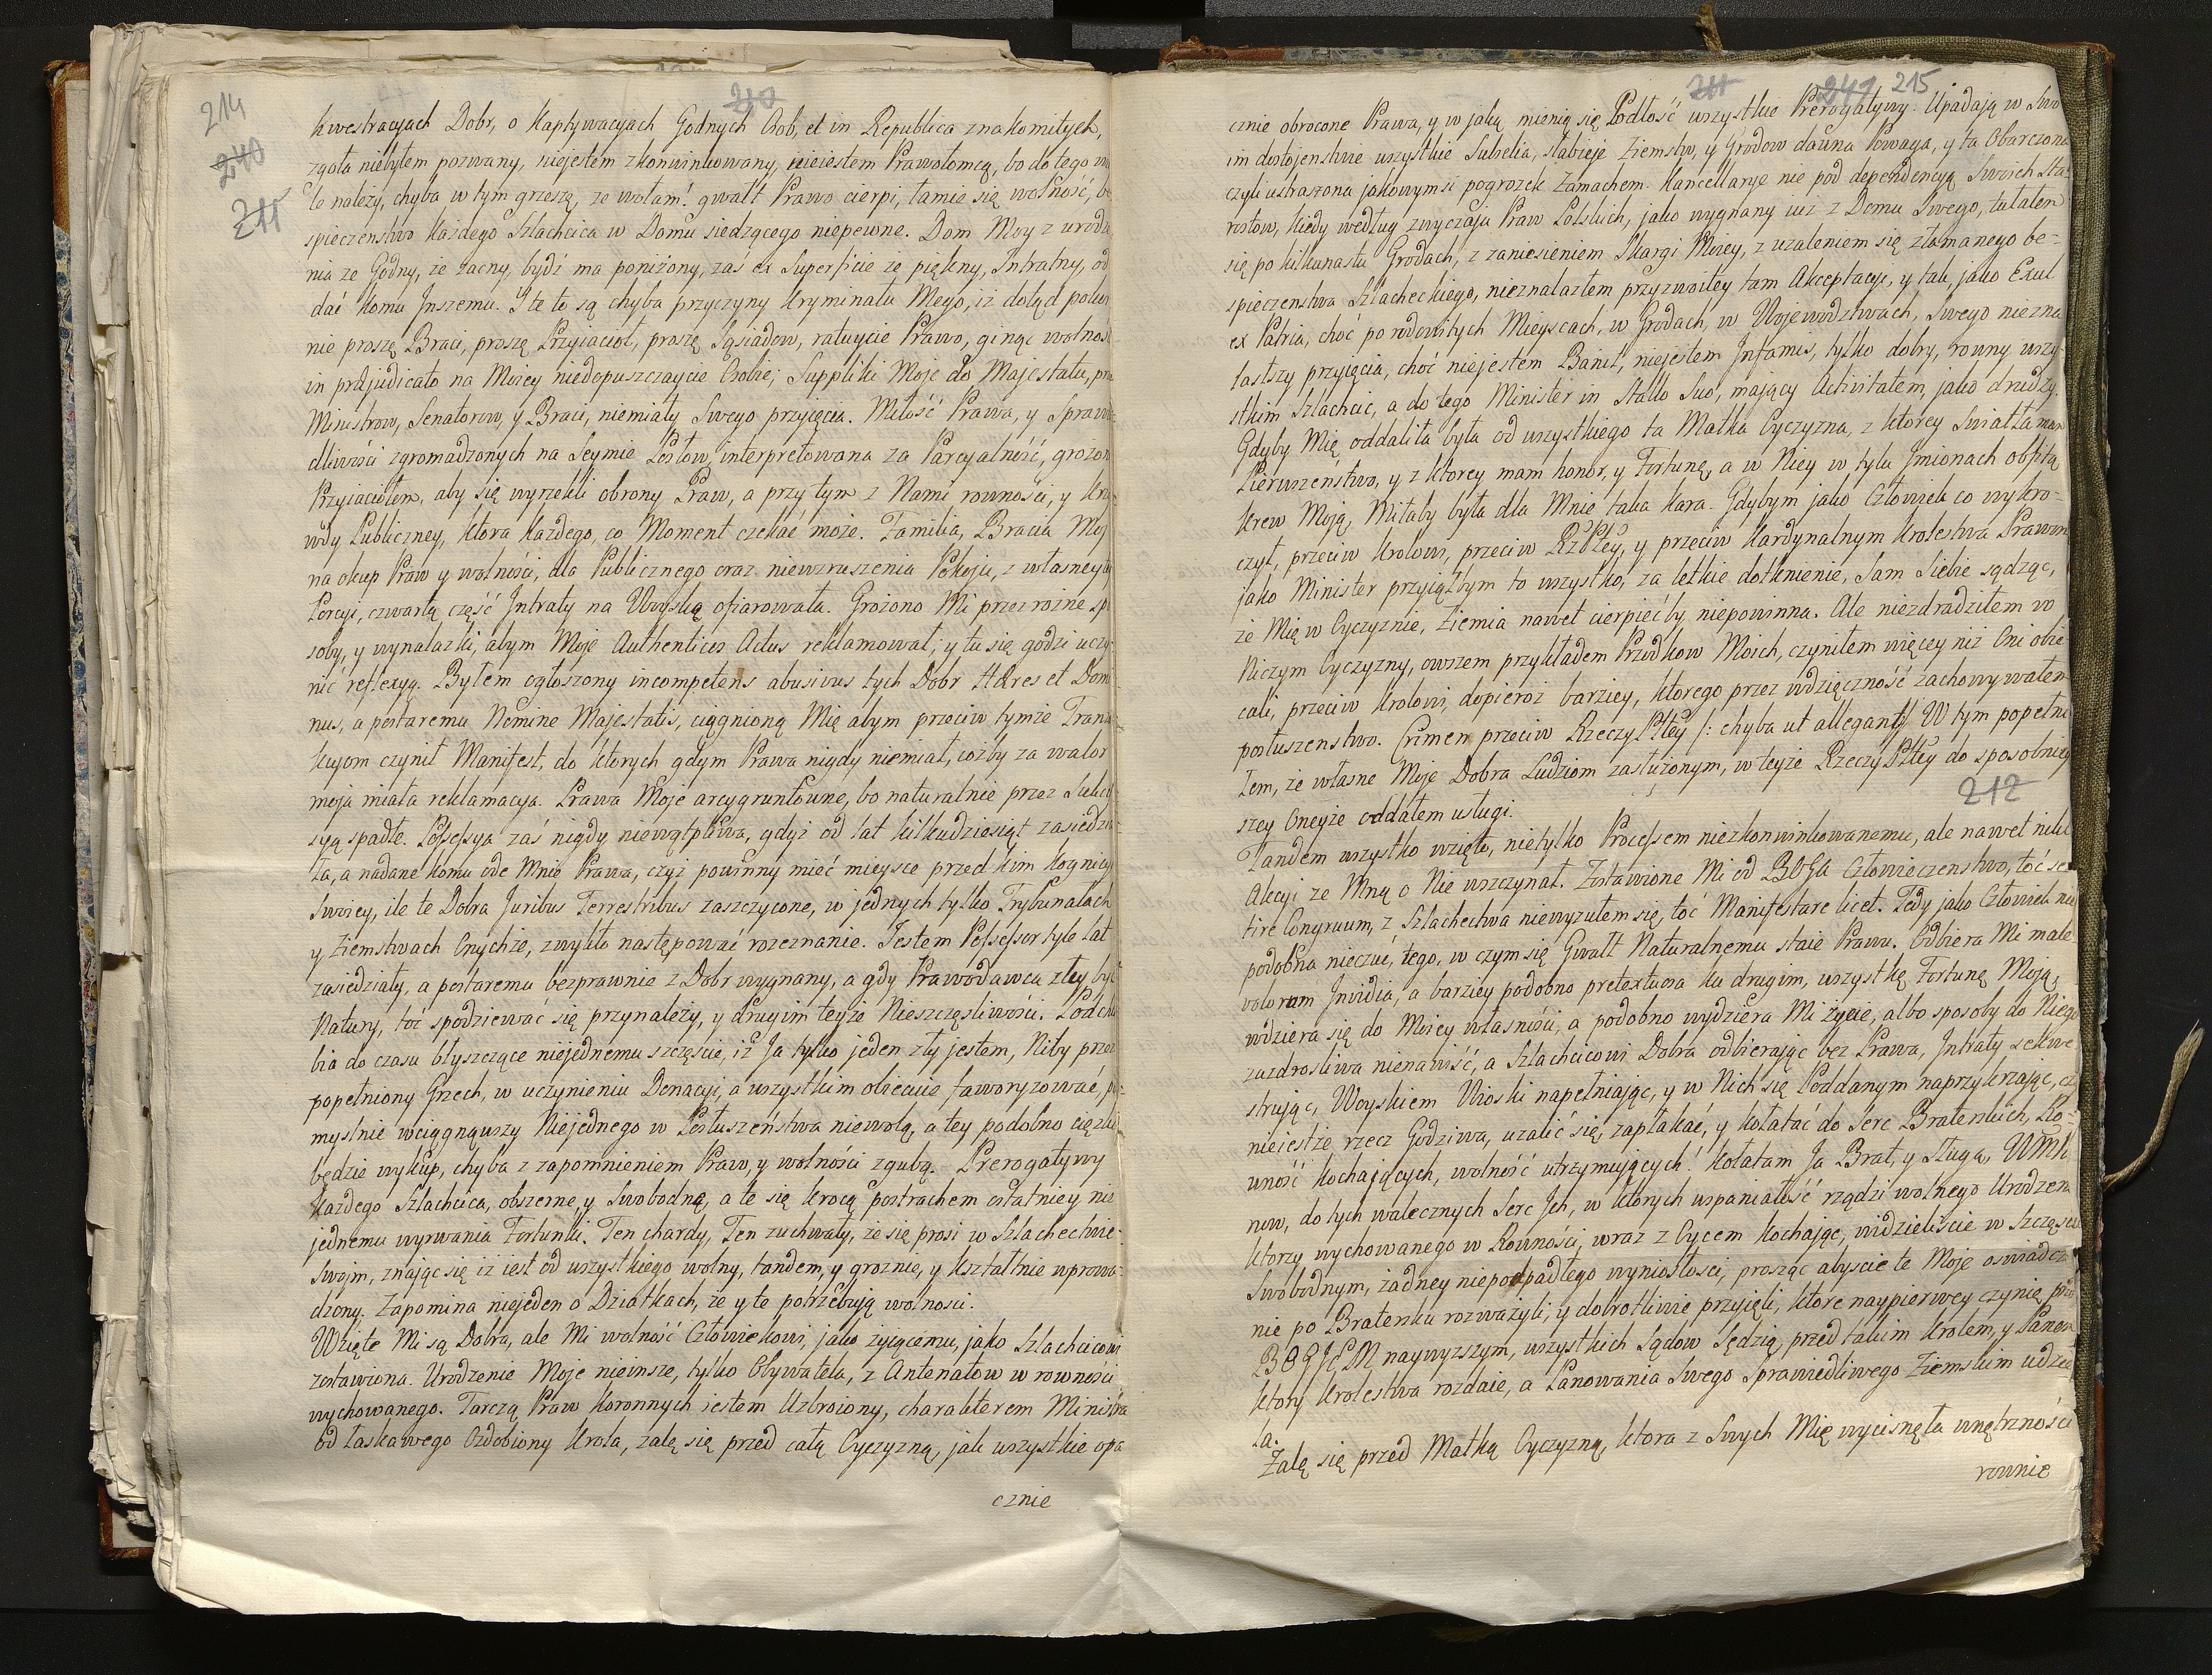 214
240
211
210
kwestracyjach Dobr, o Kaptywacyjach Godnych Osob, et in Republica znakomitych,
zgoła niebyłem pozwany, niejestem zkonwinkowany, nieiestem Prawołomcą, bo do tego
to należy, chyba w tym grzeszą, ze wołam! gwałt Prawo cierpi, łamie się wolność, be
spieczenstwo Każdego Szlachcica w Domu siedzącego niepewne. Dom Moy z urodze
nia ze Godny, że zacny, bydź ma poniżony, zaś ex Superficie ze piękny, Intratny, od
dać komu Inszemu. Ite to są chyba przyczyny Kryminału Mego, iż dotąd pokor
nie proszę Braci, proszę Przyiacioł, proszę Sąsiadow, ratuycie Prawo, ginąc wolnos
in præjudicato na Moiey niedopuszczaycie Osobie; Suppliki Moje do Majestatu, prze
Ministrow, Senatorow, y Braci, niemiały Swego przyięcia. Miłość Prawa, y Sprawie
dliwości zgromadzonych na Seymie Posłow, interpretowana za Parcyalność, grożon
Przyiaciołom, aby się wyrzekli obrony Praw, a przy tym z Nami rowności, y Krzy
wdy Publiczney, ktora Każdego, co Moment czekać może. Familia, Bracia Moi
na okup Praw y wolności, dla Publicznego oraz niewzruszenia Pokoju, z własney
Porcyi, czwartą część Intraty na Woysko ofiarowała. Grożono Mi przez rożne spo
soby, y wynalazki, abym Moje Authentices Actus reklamował; y tu się godzi uczy
nić reflexyą. Byłem ogłoszony incompetens abusivus tych Dobr Hæres et Domi
nus, a postaremu Nomine Majestatis, ciągnioną Mię abym przeciw tymże Trans
kcyom czynił Manifest, do ktorych gdym Prawa nigdy niemiał, coźby za walor
moja miała reklamacya. Prawa Moje arcygruntowne, bo naturalnie przez Sukces
syą spadłe. Possessya zaś nigdy niewątpliwa, gdyż od lat kilkudziesiąt zasiedzia
ła, a nadane komu ode Mnie Prawa, czyż powinny mieć mieysce przed kim Kognicyi
Swoiey, ile te Dobra Juribus Terrestribus zaszczycone, w jednych tylko Trybunałach
y Ziemstwach Onychże, zwykło następować rozeznanie. Jestem Possessor tyle lat
zasiedziały, a postaremu bezprawnie z Dobr wygnany, a gdy Prawodawca złey był
Natury, toż spodziewać się przynależy, y drugim teyże Nieszczęśliwości. Pochle
bia do czasu błyszczące niejednemu szczęscie, iż Ja tylko jeden zły jestem, Niby przez
popełniony Grzech, w uczynieniu Donacyi, a wszystkim obiecuie faworyzować, po
myslnie wciągnąwszy Niejednego w Posłuszeństwa niewolą, a tey podobno ciężki
będzie wykup, chyba z zapomnieniem Praw, y wolności zgubą. Prerogatywy
Każdego Szlachcica, obszerne, y Swobodną, a te się krocą postrachem ostatniey nie
jednemu wyrwania Fortunki. Ten chardy, Ten zuchwały, że się prosi w Szlachectwie
Swojm, znając się iż iest od wszystkiego wolny, tandem, y groznie, y kształtnie wprowa
dzony. Zapomina niejeden o Dziatkach, że y te potrzebują wolnosci.
Wzięte Mi są Dobra, ale Mi wolność Człowiekowi, jako żyjącemu, jako Szlachcicowi
zostawiona. Urodzenie Moje nieinsze, tylko Obywatela, z Antenatow w rowności
wychowanego. Tarczą Praw Koronnych iestem Uzbroiony, charakterem Ministra
od łaskawego Ozdobiony Krola, żalę się przed całą Oyczyzną, jak wszystkie opa
cznie
211
241 215
cznie obrocone Prawa, y w jaką mienią się Podłość wszystkie Prerogatywy. Upadają w Swo
im dostojenstwie wszystkie Subselia, słabieje Ziemstw, y Grodow dawna Powaga, y ta Obarczona
czyli ustraszona jakowymsi pogrozek Zamachem. Kancellarye nie pod dependencyą Swoich Sta
rostow, kiedy według zwyczaju Praw Polskich, jako wygnany już z Domu Swego, tułałem
się po kilkunastu Grodach, z zaniesieniem Skargi Moiey, z użaleniem się złamanego be=
spieczenstwa Szlacheckiego, nieznalazłem przyzwoitey tam Akceptacyi, y tak, jako Exul
ex Patria, choć po rodowitych Mieyscach, w Grodach, w Wojewodztwach, Swego niezna
lazłszy przyięcia, choć niejestem Banit, niejestem Infamis, tylko dobry, rowny wszy
stkim Szlachcic, a do tego Minister in Stallo Suo, mający Activitatem, jako drudzy.
Gdyby Mię oddaliła była od wszystkiego ta Matka Oyczyzna, z ktorey Swiatła mam
Pierwszeństwo, y z ktorey mam honor, y Fortunę, a w Niey w tylu Imionach obfitą
Krew Moją, Miłaby była dla Mnie taka kara. Gdybym jako Człowiek co wykro=
czył, przeciw Krolowi, przeciw RzPltey, y przeciw Kardynalnym Krolestwa Prawom
jako Minister przyiąłbym to wszystko, za letkie dotknienie, Sam Siebie sądząc,
że Mię w Oyczyznie, Ziemia nawet cierpiećby niepowinna. Ale niezdradziłem w
Niczym Oyczyzny, owszem przykładem Przodkow Moich, czyniłem więcey niż Oni obie
cali, przeciw Krolowi, dopieroż barziey, ktorego przez wdzięczność zachowywałem
posłuszenstwo. Crimen przeciw RzeczyPltey /: chyba ut allegant:/ W tym popełni
łem, że własne Moje Dobra Ludziom zasłużonym, w teyże RzeczyPltey do sposobniey
212
szey Oneyże oddałem usługi.
Tandem wszystko wzięto, nietylko Processem niezkonwinkowanemu, ale nawet nikt
Akcyi ze Mną o Nie wszczynał. Zostawione Mi od BOGA Człowieczenstwo, toć sen
tire Congruum, z Szlachectwa niewyzułem się, toć Manifestare licet. Tedy jako Człowiek nie
podobna nieczuć, tego, w czym się Gwałt Naturalnemu staie Prawu. Odbiera Mi male
volorum Invidia, a barziey podobno pretextuosa ku drugim, wszystkę Fortunę Moją,
wdziera się do Moiey własności, a podobno wydziera Mi życie, albo sposoby do Niego
zazdrosliwa nienawiść, a Szlachcicowi Dobra odbierając bez Prawa, Intraty sekwe
strując, Woyskiem Wioski napełniając, y w Nich się Poddanym naprzykrzając, cz
nieiestże rzecz Godziwa, użalić się, zapłakać, y kołatać do Serc Braterskich, Ro=
wność Kochających, wolność utrzymujących! Kołatam Ja Brat, y Sługa, WMPa
now, do tych walecznych Serc Ich, w ktorych wspaniałość rządzi wolnego Urodzenia
ktorzy wychowanego w Rowności, wraz z Oycem Kochając, widzieliście w Szczęsciu
Swobodnym, żadney niepodpadłego wyniosłości, prosząc abyscie te Moje oswiadcze
nie po Bratersku rozważyli, y dobrotliwie przyięli, ktore naypierwey czynię prze
BOGIEM naywyższym, wszystkich Sądow Sędzią, przed takim Krolem, y Panem
ktory Krolestwa rozdaie, a Panowania Swego Sprawiedliwego Ziemskim udzie
la.
Zalę się przed Matką Oyczyzną, ktora z Swych Mię wycisnęła wnętrzności
rownie